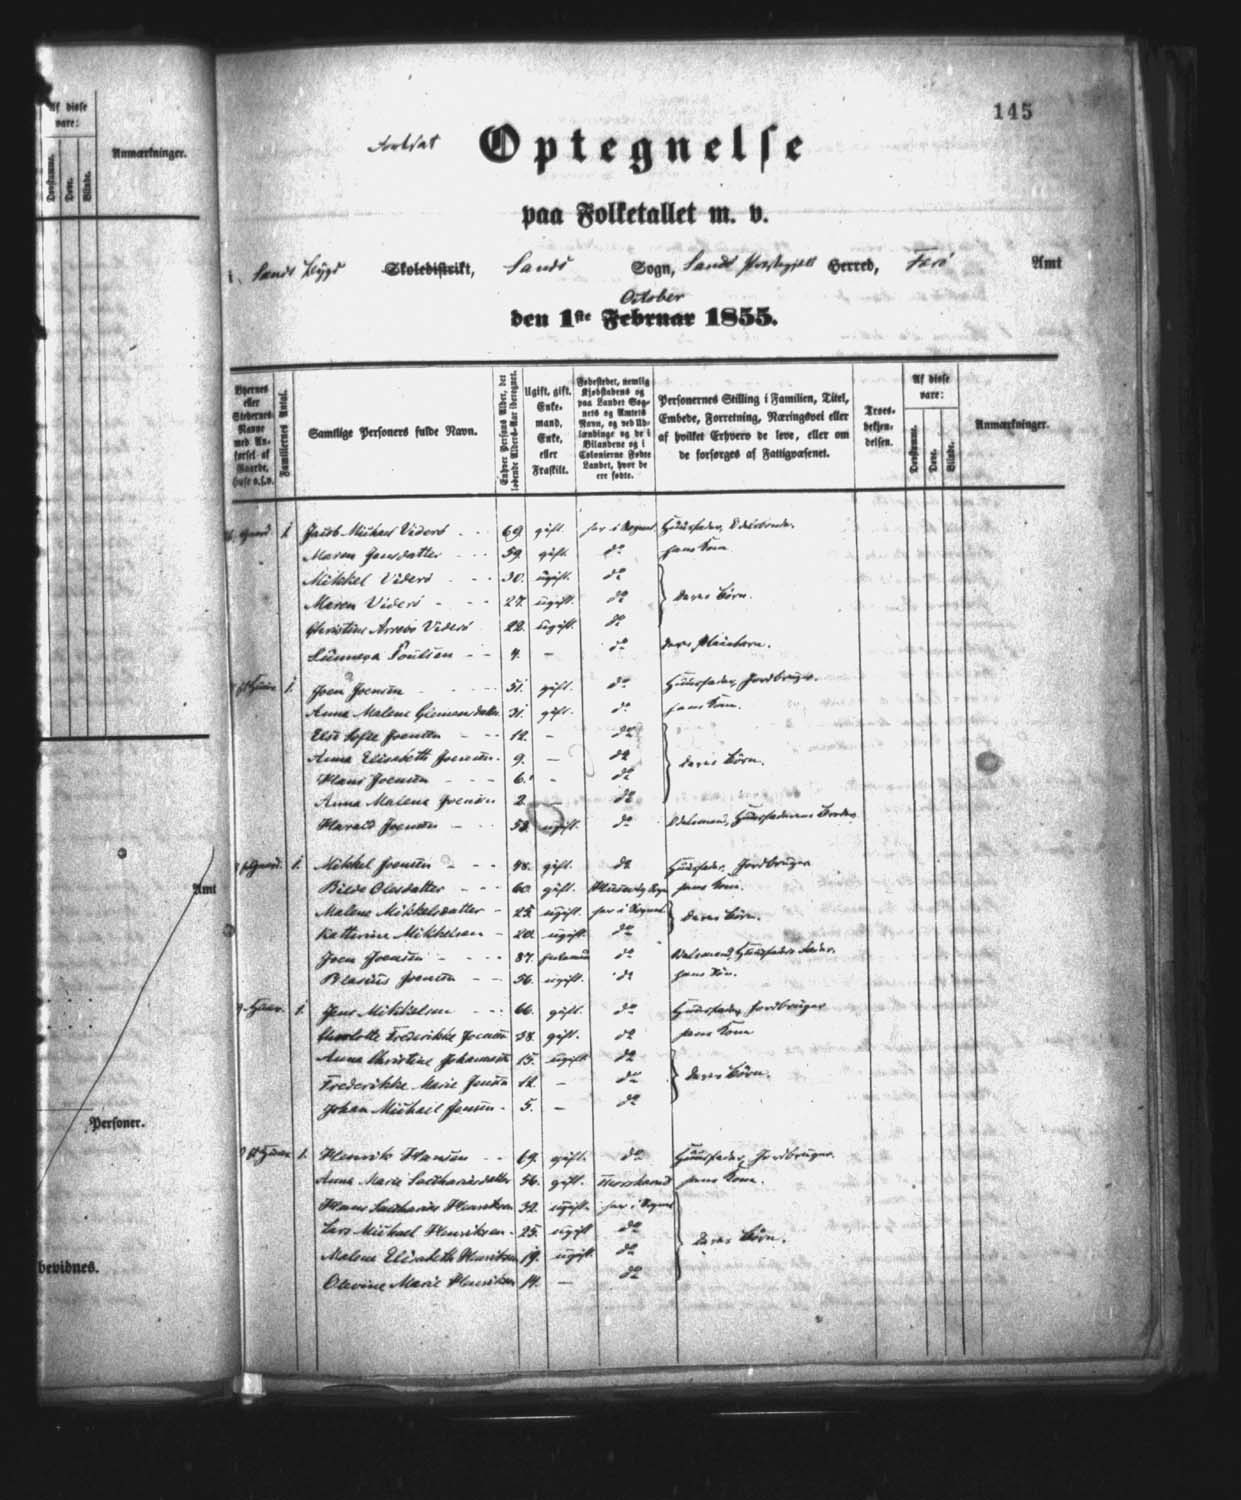 Af disse
vare:
Anmærkninger.
Døvstumme.
Døve.
Blinde.
Amt
Personer.
bevidnes.
145
Fortsat Optegnelse
paa Folketallet m. v.
i Sands Bygd Skoledistrikt, Sands Sogn, Sands Præstegjeld Herred, Færø Amt
October
den 1ste Februar 1855.
Byernes eller Stedernes Navne med Anførsel af Gaarde, Huse o.s.v.
Familiernes Antal.
Samtlige Personers fulde Navn.
Enhver Persons Alder, det løbende Alders-Aar iberegnet.
Ugift, gift, Enkemand, Enke, eller Fraskilt.
Fødestedet, nemlig Kjøbstadens og paa Landet Sognets og Amtets Navn, og ved Udlændinge og de i Bilandene og i Colonierne Fødte Landet, hvor de ere fødte.
Personernes Stilling i Familien, Titel, Embede, Forretning, Næringsvei eller af hvilket Erhverv de leve, eller om de forsørges af Fattigvæsenet.
Troesbekjendelsen.
Af disse vare:
Døvstumme.
Døve.
Blinde.
Anmærkninger.
Gaard 1 Jacob Michael Viderø 69. gift. her i Sognet Huusfader, Odelsbonde.
Maren Jensdatter 59. gift. do hans Kone
Mikkel Viderø 30. ugift. do
Maren Viderø 27. ugift. do deres Børn.
Christine Viderø 22. ugift. do
Sunneva Poulsen 4. — do deres Pleiebarn.
Huus 1. Joen Joensen 51. gift. do Huusfader, Jordbruger.
Anna Malene Clemensdatter 31. gift. do hans Kone.
Else Sofie Joensen 12. — do
Anna Elisabeth Joensen 9. — do deres Børn.
Hans Joensen 6. - do
Anna Malene Joensen 2. do
Harald Joensen 58. ugift. do Huusfaderens Broder
1. Mikkel Joensen 48. gift. do Huusfader, Jordbruger
Olesdatter 60. gift. hans Kone.
Malene Mikkelsdatter 25. ugift. her i Sognet
Katherine Mikkelsen 20. ugift. do deres Børn.
Joen Joensen 87. do Huusfaders Fader.
Blasius Joensen 56. ugift. do hans Søn.
Huus 1. Jens Mikkelsen 66. gift. do Huusfader, Jordbruger
Charlotte Frederikke Joensen 38. gift. do hans Kone
Anna Christine Johannesen 15. ugift do
Frederikke Marie Jensen 12. — do deres Børn.
Johan Michael Jensen 5. — do
Huus 1. Henrik Hansen 69. gift. do Huusfader, Jordbruger
Anna Marie Sachariasdatter 56. gift. hans Kone.
Hans Sacharias Henriksen 32. ugift. her i Sognet
Lars Michael Henriksen 25. ugift do
Malene Elisabeth Henriksen 19. ugift. do deres Børn.
Olevine Marie Henriksen 14. — do